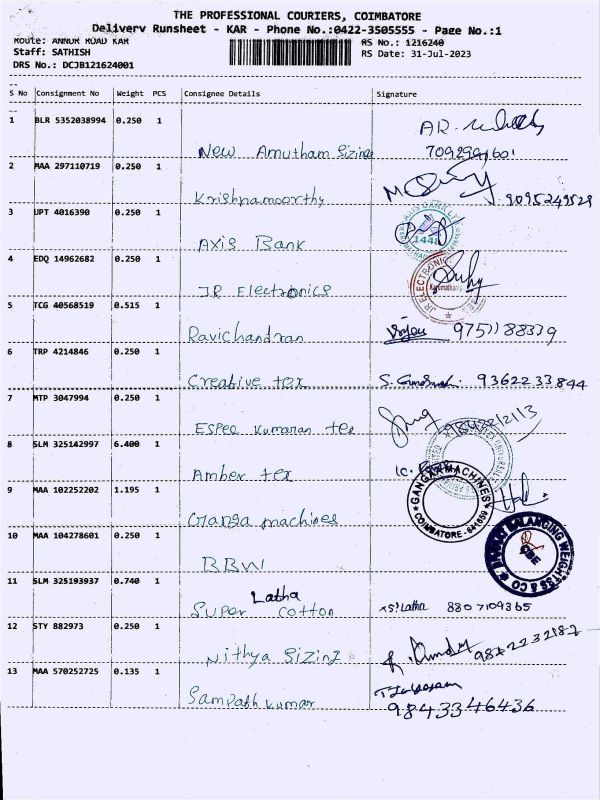 THE PROFESSIONAL COURIERS, COIMBATORE
Delivery Runsheet - KAR - Phone No.:0422-3505555 - Page No.:1
Route: ANNUR ROAD KAR
RS No.: 1216240
Staff: SATHISH
RS Date: 31-Jul-2023
DRS No.: DCJB121624001
S No Consignment No Weight PCS Consignee Details Signature
1 BLR 5352038994 0.250 1
New Amutham Sizing
2 MAA 297110719 0.250 1
Krishnamoorthy 9095249529
3 UPT 4016390 0.250 1
Axis Bank
4 EDQ 14962682 0.250 1
JR Electronics
JR ELECTRONICS
5 TCG 40568519 0.515 1
Ravichandran
6 TRP 4214846 0.250 1
Creative tex 9362233844
7 MTP 3047994 0.250 1
Espee kumaran tex
8 SLM 325142997 6.400 1
Amber tex
9 MAA 102252202 1.195 1
Ganga machines
GANGA MACHINES
COIMBATORE - 641659
10 MAA 104278601 0.250 1
BBW
BALANCING WEIGHTSS & CO
CBE
11 SLM 325193937 0.740 1
Latha
Super cotton Latha 8807109365
12 STY 882973 0.250 1
Nithya Sizing
13 MAA 570252725 0.135 1
Sampath kumar 9843346436